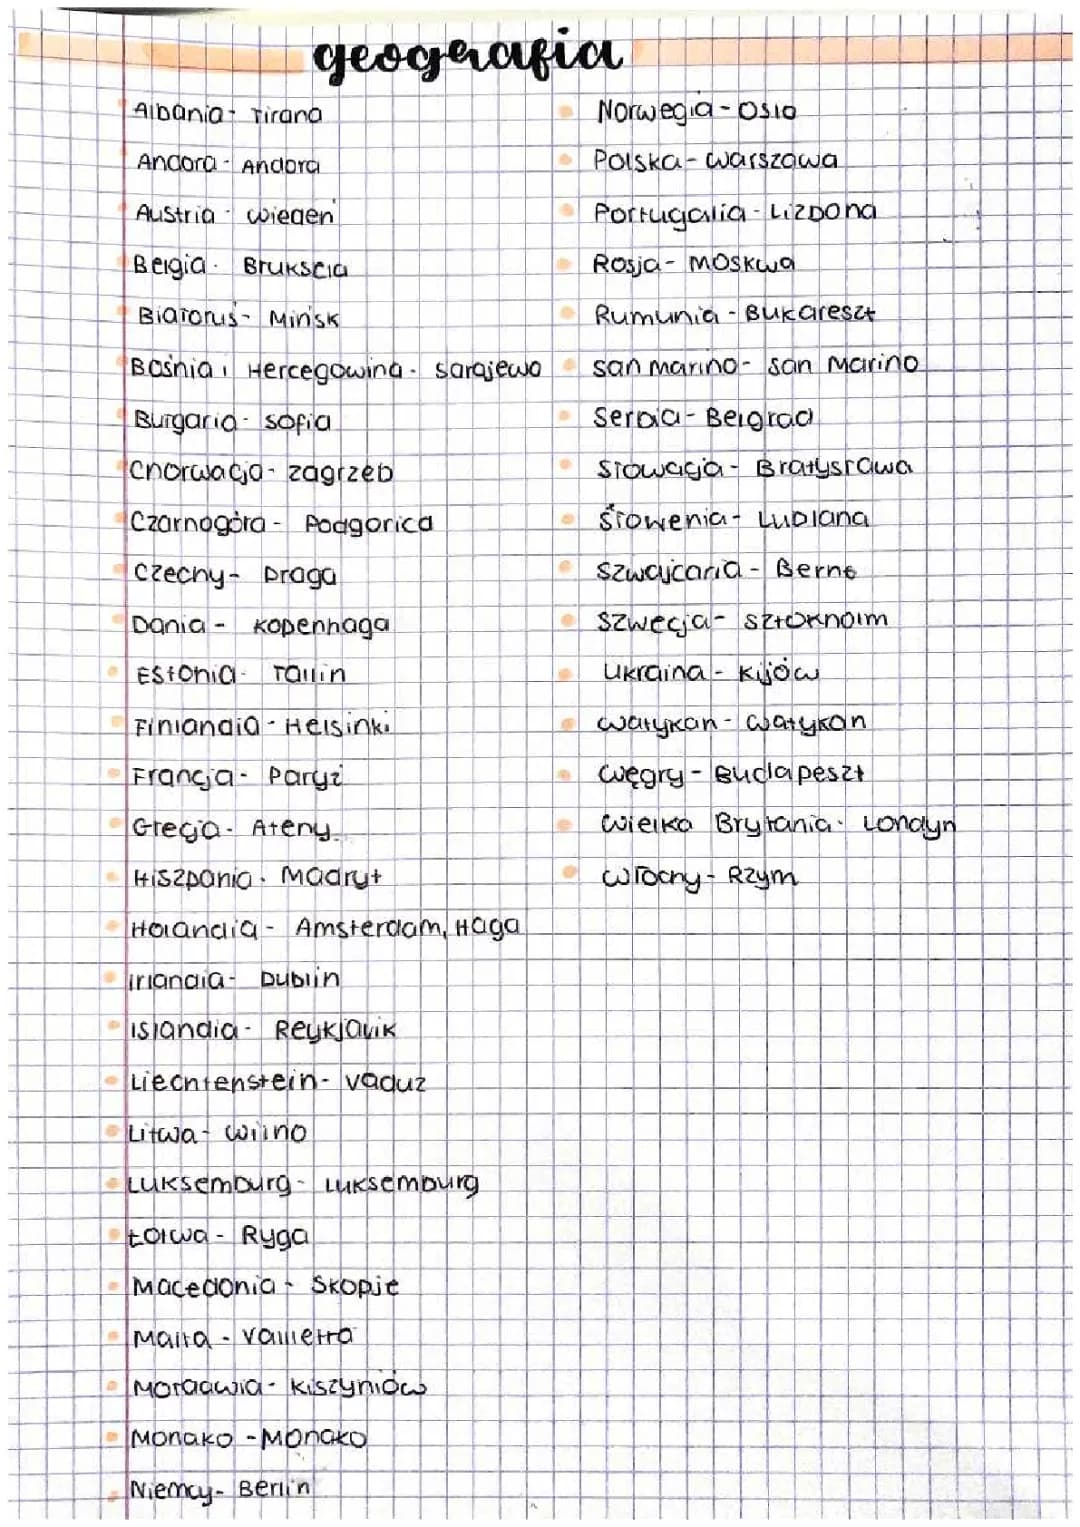 geografia
Albania - Tirana
Andora - Andora
Austria - Wiedeń
Belgia - Bruksela
Białoruś - Mińsk
Bośnia i Hercegowina - Sarajewo
Bułgaria - Sofia
Chorwacja - Zagrzeb
Czarnogóra - Podgorica
Czechy - Praga
Dania - Kopenhaga
Estonia - Tallin
Finlandia - Helsinki
Francja - Paryż
Grecja - Ateny
Hiszpania - Madryt
Holandia - Amsterdam, Haga
Irlandia - Dublin
Islandia - Reykjavik
Liechtenstein - Vaduz
Litwa - Wilno
Luksemburg - Luksemburg
Łotwa - Ryga
Macedonia - Skopje
Malta - Valletta
Mołdawia - Kiszyniów
Monako - Monako
Niemcy - Berlin
Norwegia - Oslo
Polska - Warszawa
Portugalia - Lizbona
Rosja - Moskwa
Rumunia - Bukareszt
San marino - San Marino
Serbia - Belgrad
Słowacja - Bratysława
Słowenia - Lublana
Szwajcaria - Berno
Szwecja - Sztokholm
Ukraina - Kijów
Watykan - Watykan
Węgry - Budapeszt
Wielka Brytania - Londyn
Włochy - Rzym